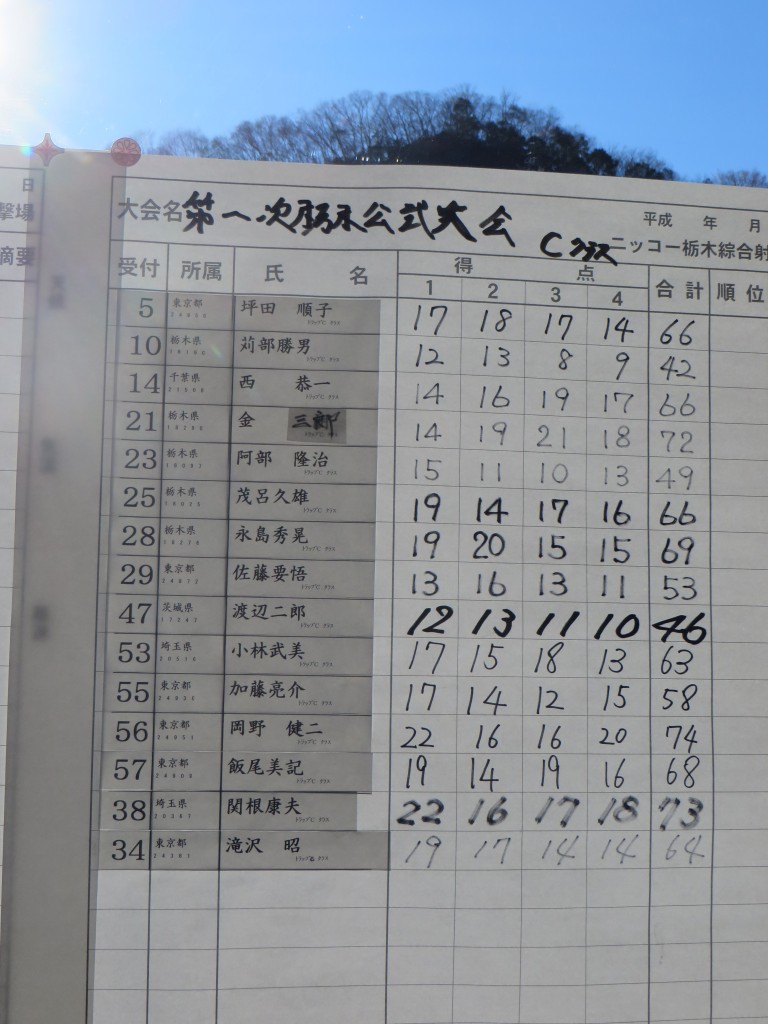 日
撃場
摘要
大会名 第一次栃木公式大会 Cクラス
平成 年 月
ニッコー栃木綜合射
受付 所属 氏 名 得 点 合計 順位
1 2 3 4
5 東京都 坪田 順子 17 18 17 14 66
10 栃木県 苅部勝男 12 13 8 9 42
14 千葉県 西 恭一 14 16 19 17 66
21 栃木県 金 三郎 14 19 21 18 72
23 栃木県 阿部 隆治 15 11 10 13 49
25 栃木県 茂呂久雄 19 14 17 16 66
28 栃木県 永島秀晃 19 20 15 15 69
29 東京都 佐藤要悟 13 16 13 11 53
47 茨城県 渡辺二郎 12 13 11 10 46
53 埼玉県 小林武美 17 15 18 13 63
55 東京都 加藤亮介 17 14 12 15 58
56 東京都 岡野 健二 22 16 16 20 74
57 東京都 飯尾美記 19 14 19 16 68
38 埼玉県 関根康夫 22 16 17 18 73
34 東京都 滝沢 昭 19 17 14 14 64